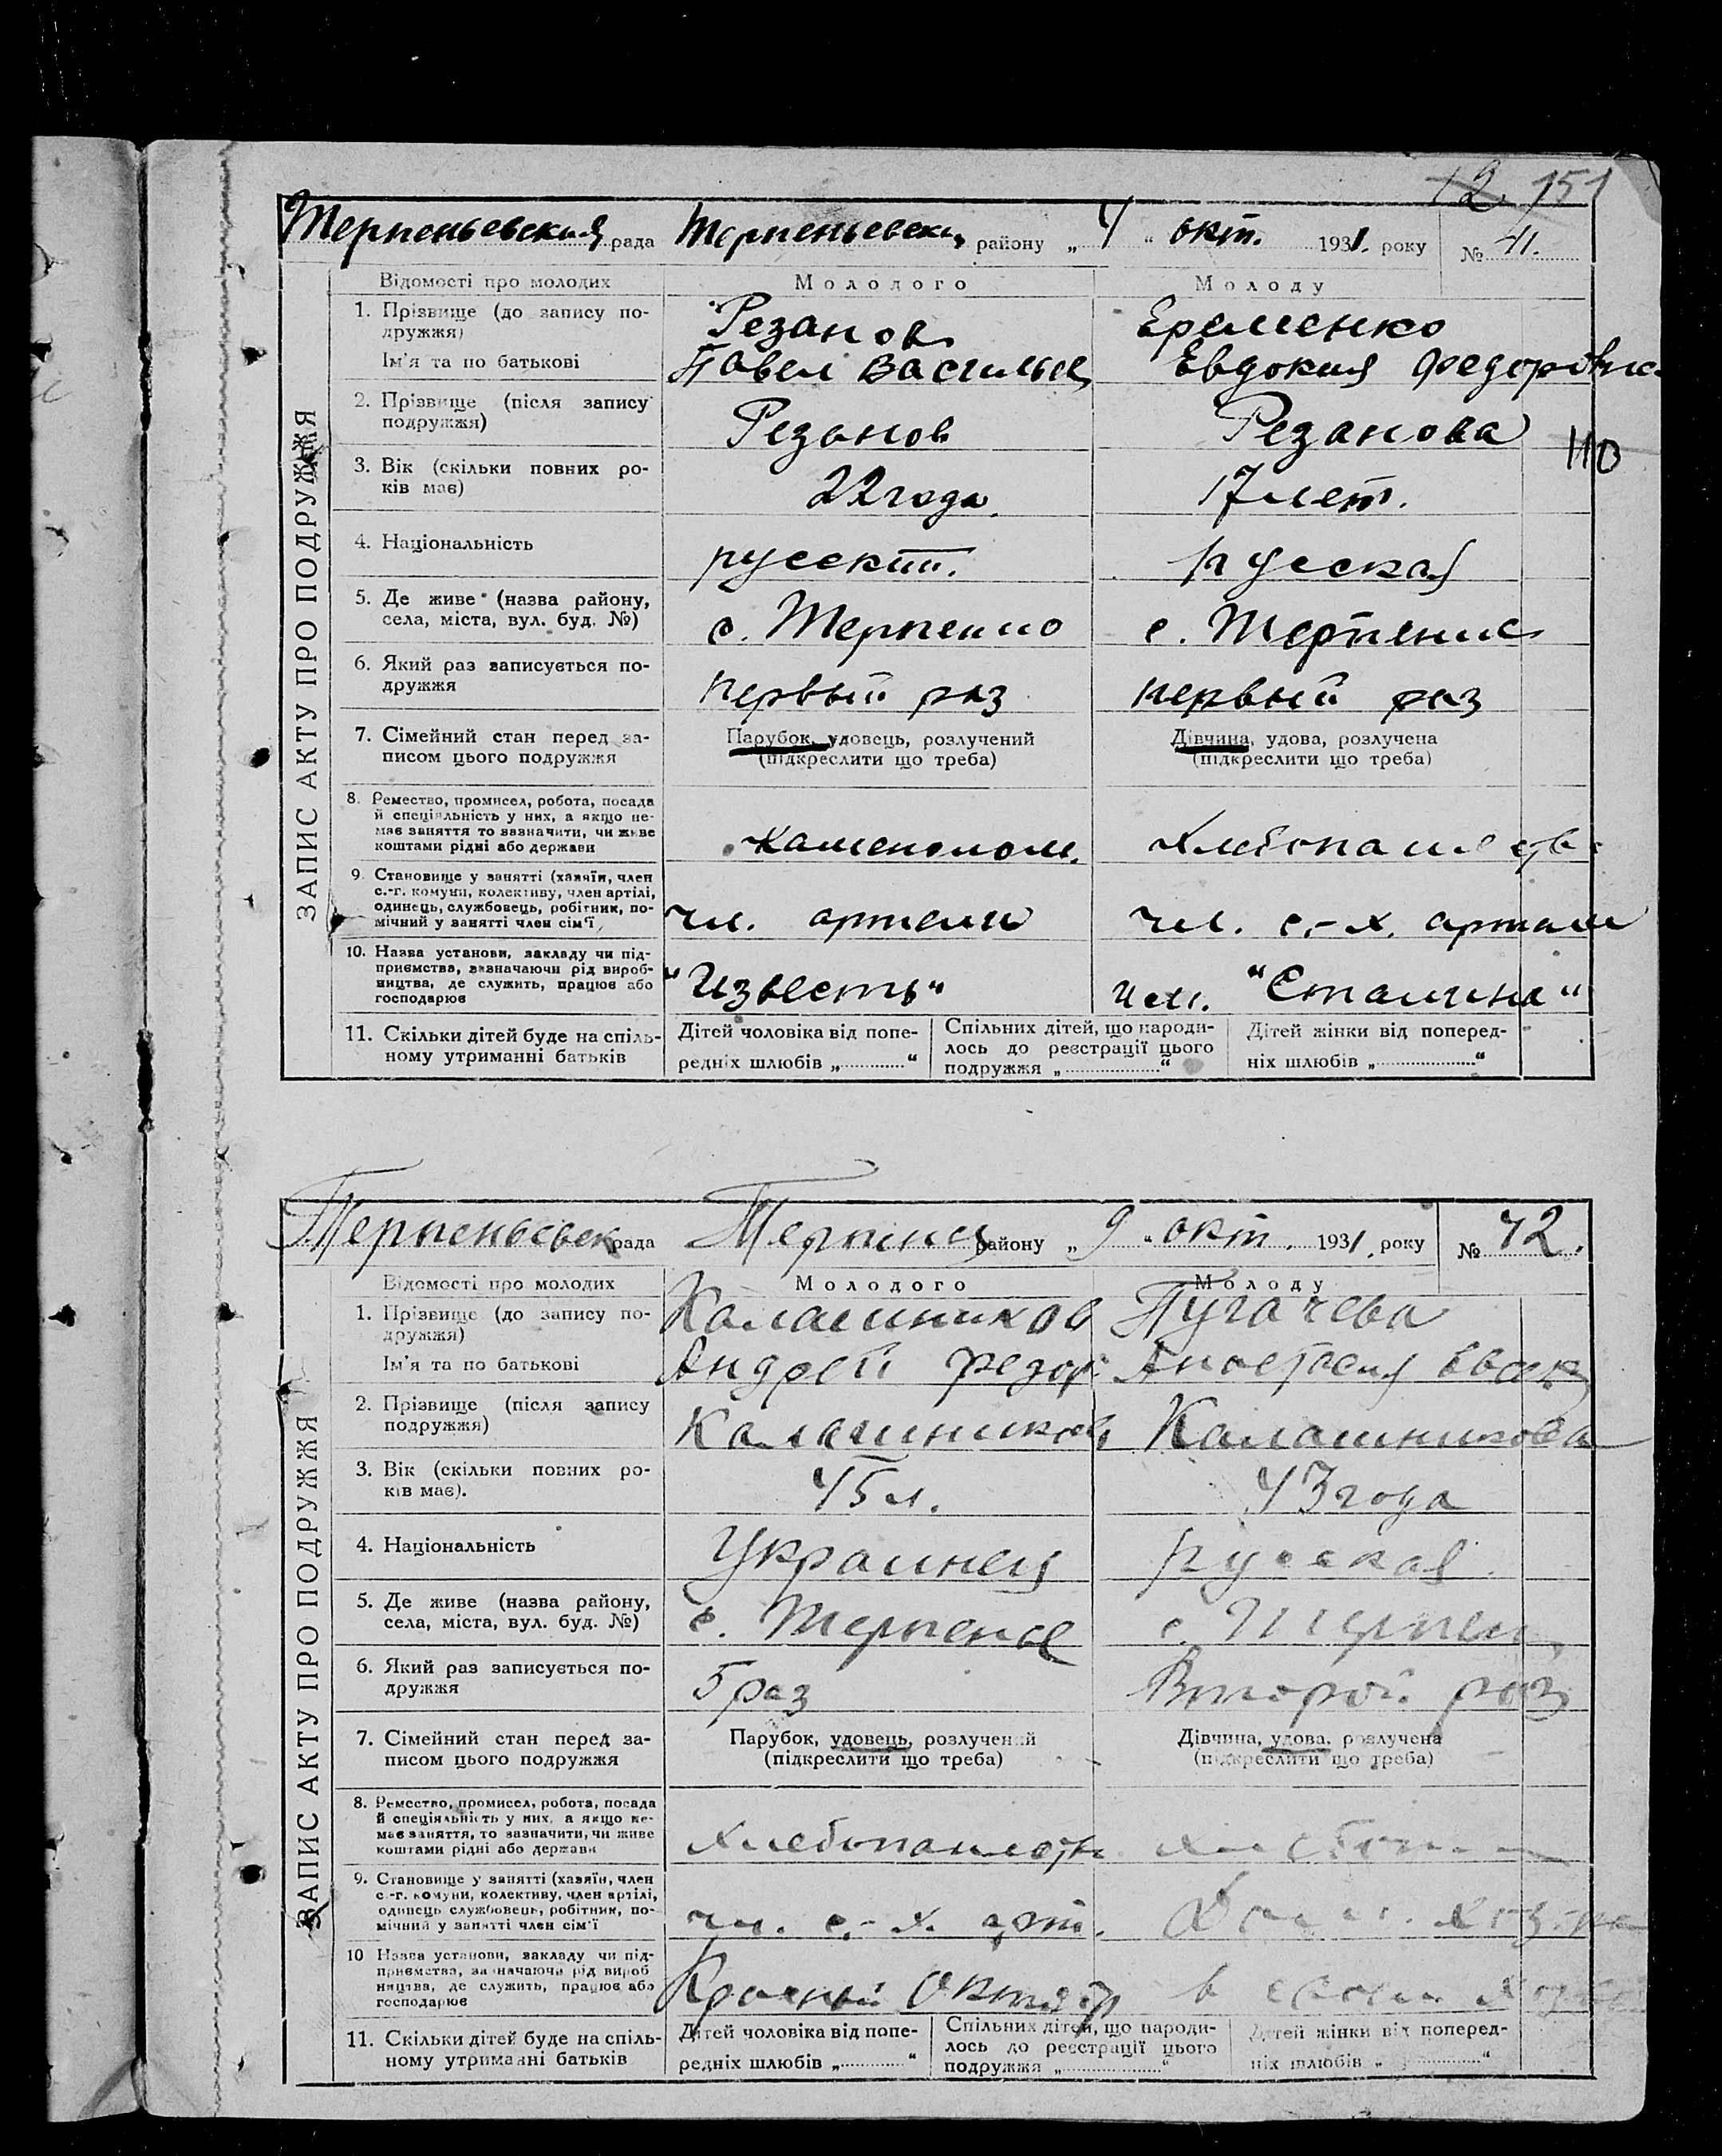 12 151
Терпеньевская рада Терпеньевск. району „ 4 “ окт. 1931. року № 41.
ЗАПИС АКТУ ПРО ПОДРУЖЖЯ
Відомості про молодих Молодого Молоду
1. Прізвище (до запису по- Резанов Еременко
дружжя)
Ім'я та по батькові Павел Васильев Евдокия Федоровна
2. Прізвище (після запису Резанов Резанова
подружжя)
110
3. Вік (скільки повних ро- 22 года. 17 лет.
ків має)
4. Національність русский. русская
5. Де живе (назва району, с. Терпение с. Терпение
села, міста, вул. буд. №)
6. Який раз записується по- первый раз первый раз
дружжя
7. Сімейний стан перед за- Парубок, удовець, розлучений Дівчина, удова, розлучена
писом цього подружжя (підкреслити що треба) (підкреслити що треба)
8. Ремество, промисел, робота, посада
й спеціяльність у них, а якщо не-
має заняття то зазначити, чи живе каменолом. хлебопашеств.
коштами рідні або держави
9. Становище у занятті (хазяїн, член
с.-г. комуни, колективу, член артілі,
одинець, службовець, робітник, по- чл. артели чл. с.-х. артели
мічний у занятті член сім'ї)
10. Назва установи, закладу чи під-
приємства, зазначаючи рід вироб- "Известь" им. "Сталина"
ництва, де служить, працює або
господарює
11. Скільки дітей буде на спіль- Дітей чоловіка від попе- Спільних дітей, що народи- Дітей жінки від поперед-
ному утриманні батьків редніх шлюбів „ “ лось до реєстрації цього ніх шлюбів „ “
подружжя „ “
Терпеньевск рада району „ 9 “ окт. 1931. року № 42.
ЗАПИС АКТУ ПРО ПОДРУЖЖЯ
Відомості про молодих Молодого Молоду
1. Прізвище (до запису по- Калашников Пугачева
дружжя)
Ім'я та по батькові Андрей Федор. Анастасия
2. Прізвище (після запису Калашников Калашникова
подружжя)
3. Вік (скільки повних ро- 45 л. 43 года
ків має).
4. Національність Украинец русская
5. Де живе (назва району, с. Терпенье с. Терпен
села, міста, вул. буд. №)
6. Який раз записується по- 5 раз Второй раз
дружжя
7. Сімейний стан перед за- Парубок, удовець, розлучений Дівчина, удова, розлучена
писом цього подружжя (підкреслити що треба) (підкреслити що треба)
8. Ремество, промисел, робота, посада
й спеціяльність у них, а якщо не-
має заняття, то зазначити, чи живе хлебопашеств.
коштами рідні або держави
9. Становище у занятті (хазяїн, член
с.-г. комуни, колективу, член артілі,
одинець службовець, робітник, по- чл. с.-х. арт.
мічний у занятті член сім'ї
10 Назва установи, закладу чи під-
приємства, зазначаючи рід вироб Красный Октябр в
ництва, де служить, працює або
господарює
11. Скільки дітей буде на спіль- Дітей чоловіка від попе- Спільних дітей, що народи- Дітей жінки від поперед-
ному утриманні батьків редніх шлюбів „ “ лось до реєстрації цього ніх шлюбів „ “
подружжя „ “